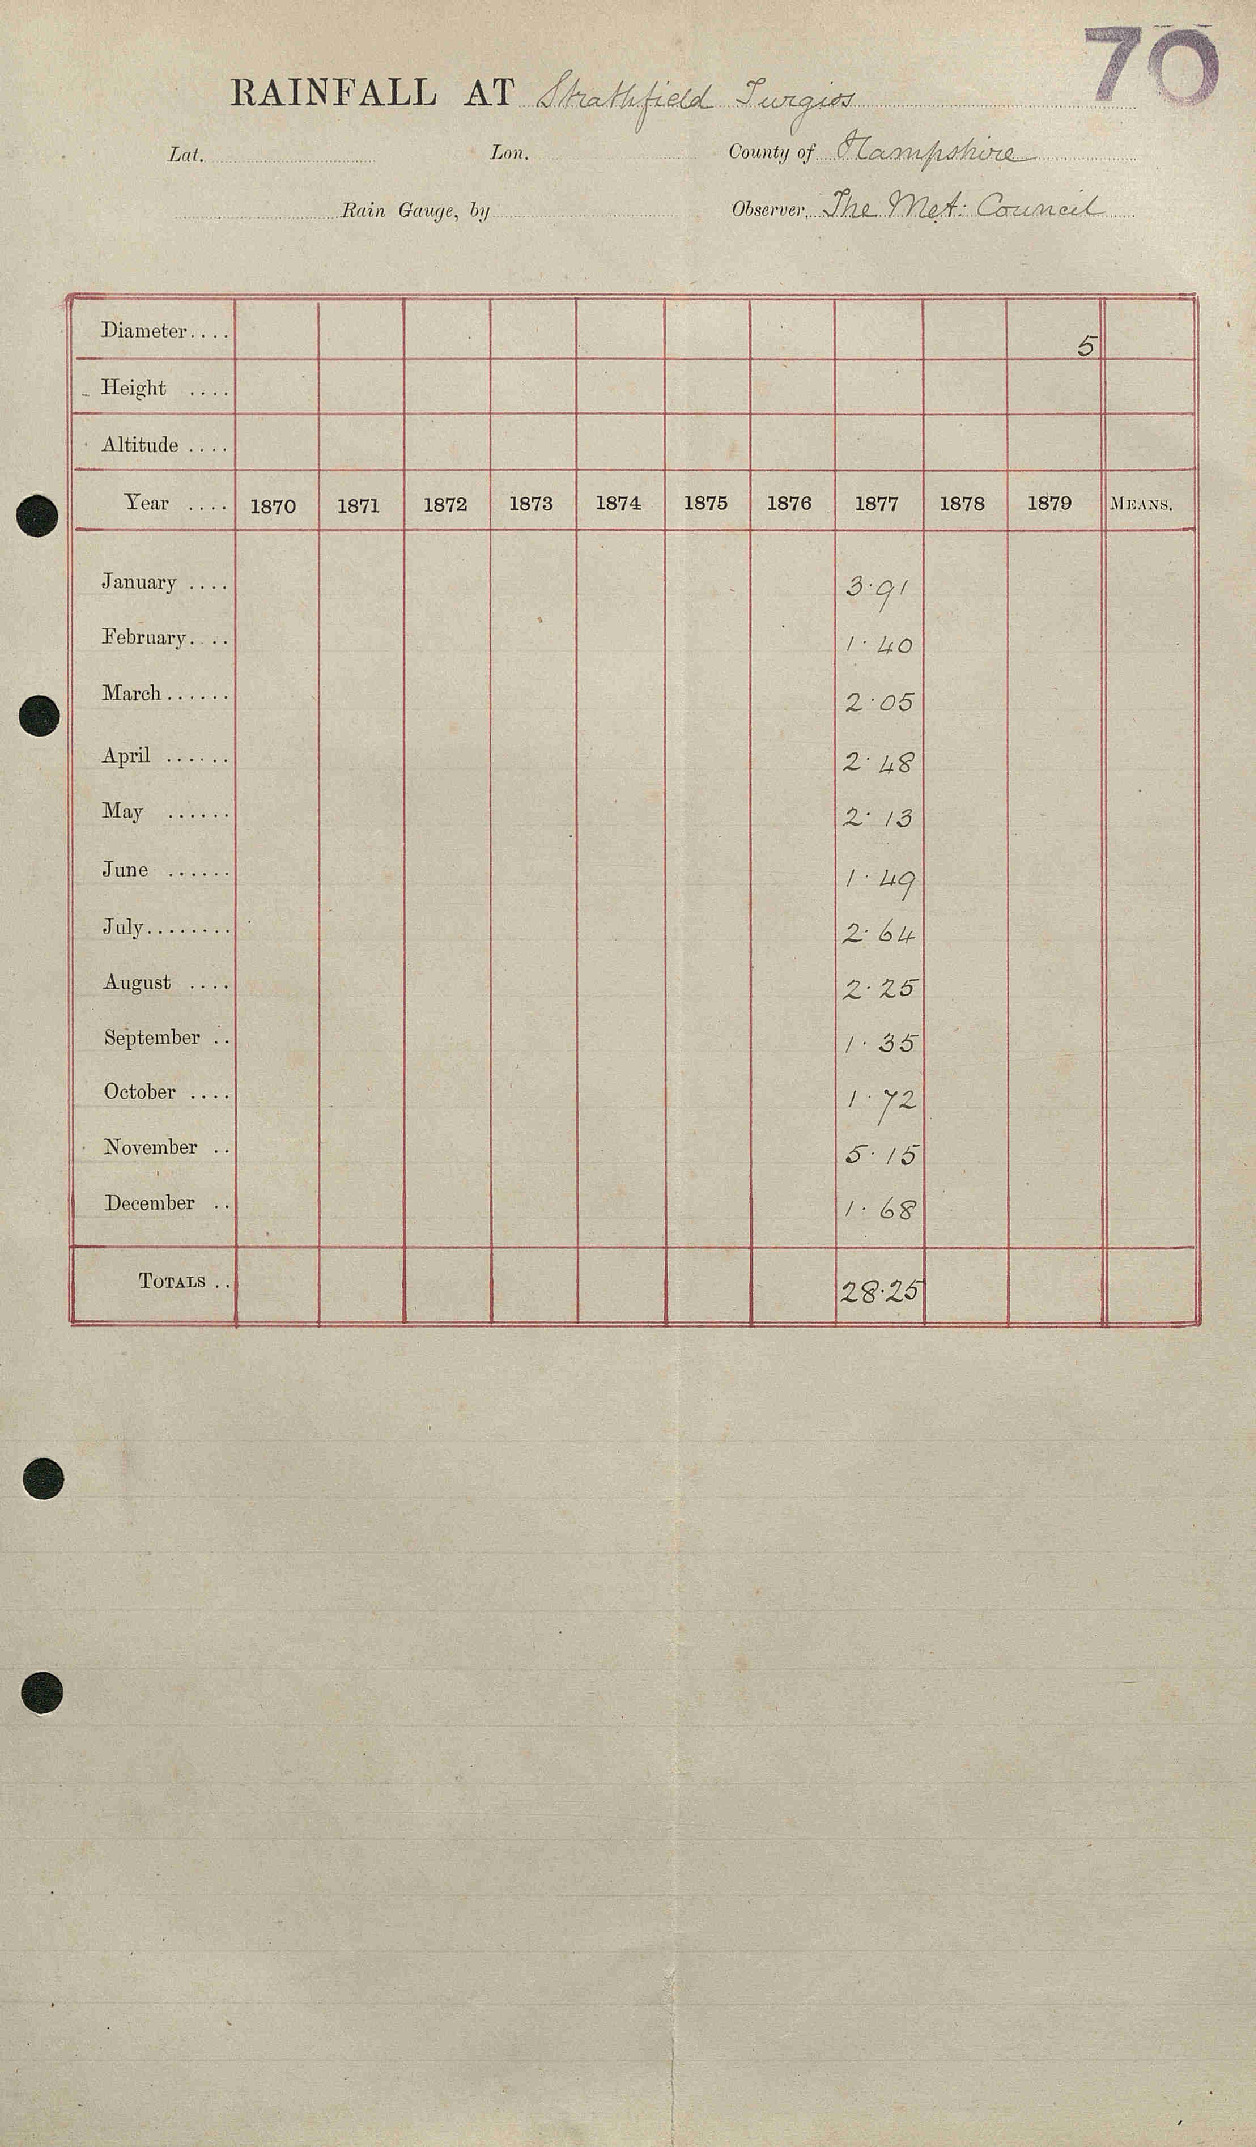 70
RAINFALL AT Strathfield Turgiss
Lat. Lon. County of Hampshire
Rain Gauge, by Observer, The Met: Council
Diameter.... 5
Height ....
Altitude ....
Year .... 1870 1871 1872 1873 1874 1875 1876 1877 1878 1879 MEANS.
January .... 3·91
February.... 1·40
March...... 2·05
April ...... 2·48
May ...... 2·13
June ...... 1·49
July........ 2·64
August .... 2·25
September .. 1·35
October .... 1·72
November .. 5·15
December .. 1·68
TOTALS .. 28·25